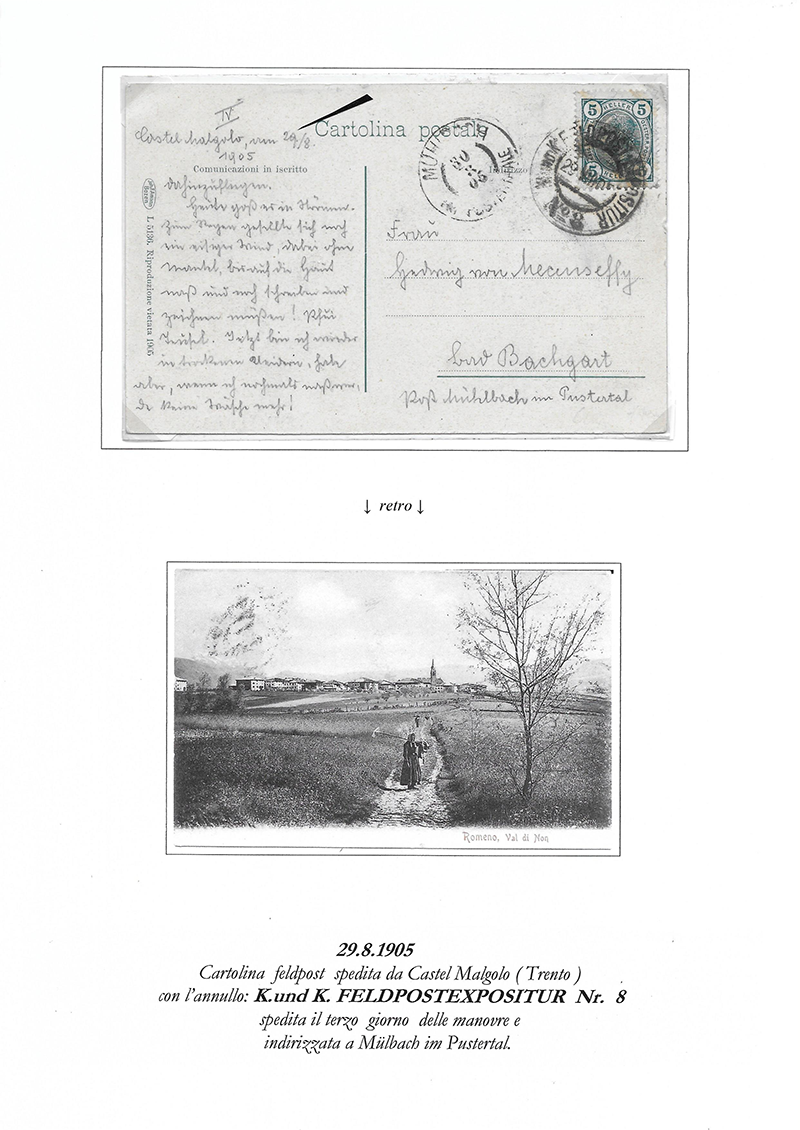 IV
Castel Malgolo, am 29/8.
1905
Cartolina postale
Comunicazioni in iscritto
Indirizzo
L 5136. Riproduzione vietata 1905
5 HELLER 5
MÜHLBACH
IM PUSTERTHALE
30
05
K. UND K. FELDPOSTEXPOSITUR
No 8
29
dahinzufliegen.
Heute goß er in Strömen.
Zum Regen gesellte sich noch
ein eisiger Wind, dabei ohne
Mantel, bis auf die Haut
naß und noch schreiben und
zeichnen müßen! Pfui
Teufel. Jetzt bin ich wieder
in trockenen Kleidern, habe
aber, wenn ich nochmals naß wer-
de keine Wäsche mehr!
Frau
Hedwig von Mecenseffy
Bad Bachgart
Post Mühlbach im Pustertal
↓ retro ↓
Romeno, Val di Non
29.8.1905
Cartolina feldpost spedita da Castel Malgolo ( Trento )
con l'annullo: K.und K. FELDPOSTEXPOSITUR Nr. 8
spedita il terzo giorno delle manovre e
indirizzata a Mülbach im Pustertal.